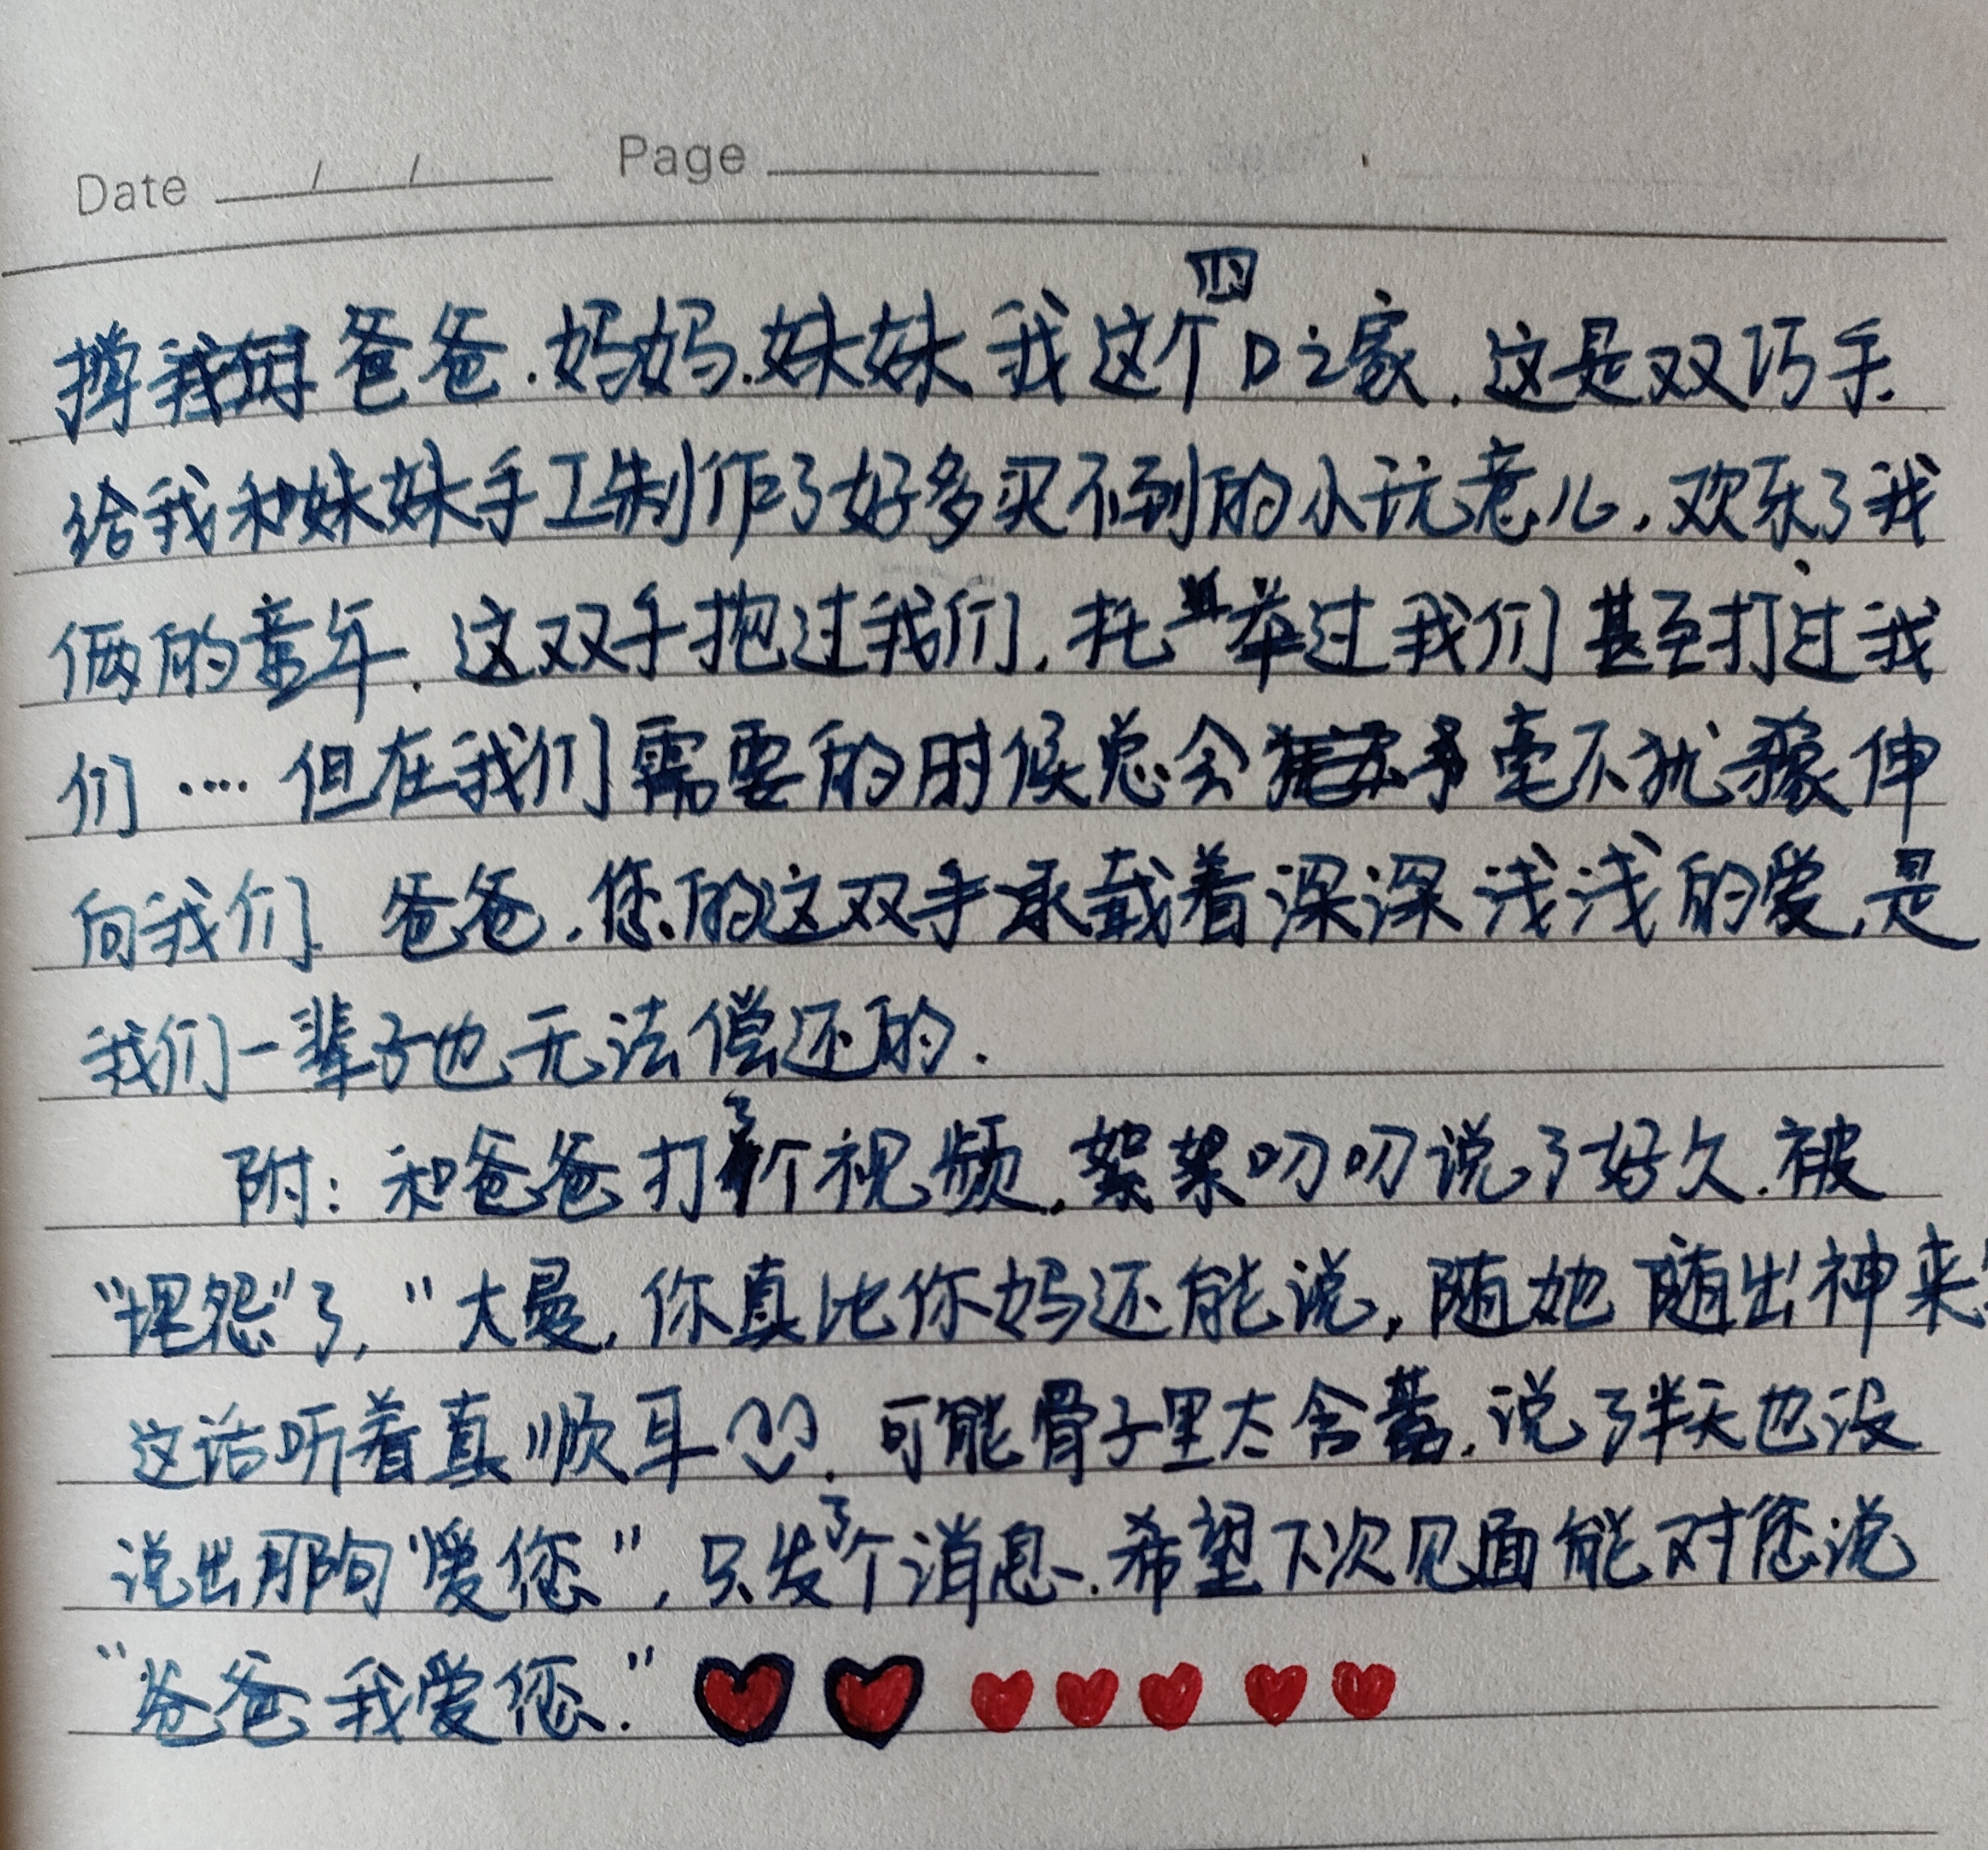 Date / / Page
撑爸爸.妈妈.妹妹我这个四口之家.这是双巧手.
给我和妹妹手工制作了好多买不到的小玩意儿,欢乐了我
俩的童年.这双手抱过我们,托举过我们甚至打过我
们····但在我们需要的时候总会毫不犹豫伸
向我们.爸爸,您的这双手承载着深深浅浅的爱,是
我们一辈子也无法偿还的.
附:和爸爸打了个视频,絮絮叨叨说了好久.被
“埋怨”了,“大曼,你真比你妈还能说,随她随出神来”
这话听着真顺耳.可能骨子里太含蓄,说了半天也没
说出那句“爱您”,只发了个消息.希望下次见面能对您说
“爸爸我爱您.”